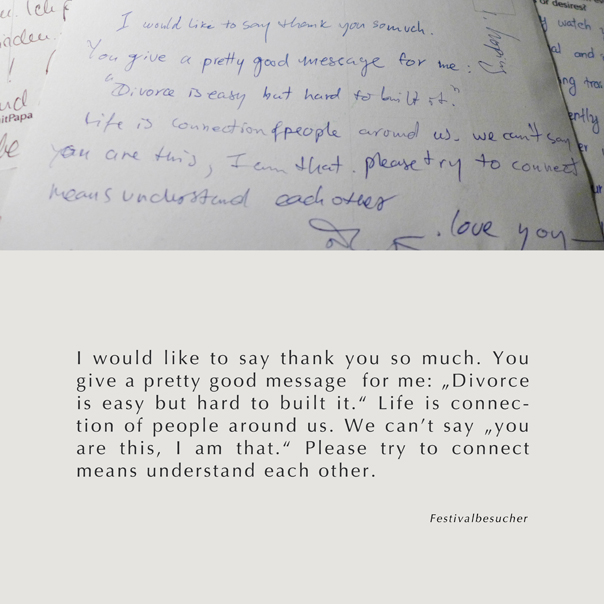 I would like to say thank you somuch.
You give a pretty good message for me:
"Divorce is easy but hard to built it."
Life is connection of people around us. we can't say
you are this, I am that. please try to connect
means understand each other
. love you
itPapa
or desirest
watch
al and
ently
I would like to say thank you so much. You
give a pretty good message for me: „Divorce
is easy but hard to built it.“ Life is connec-
tion of people around us. We can’t say „you
are this, I am that.“ Please try to connect
means understand each other.
Festivalbesucher